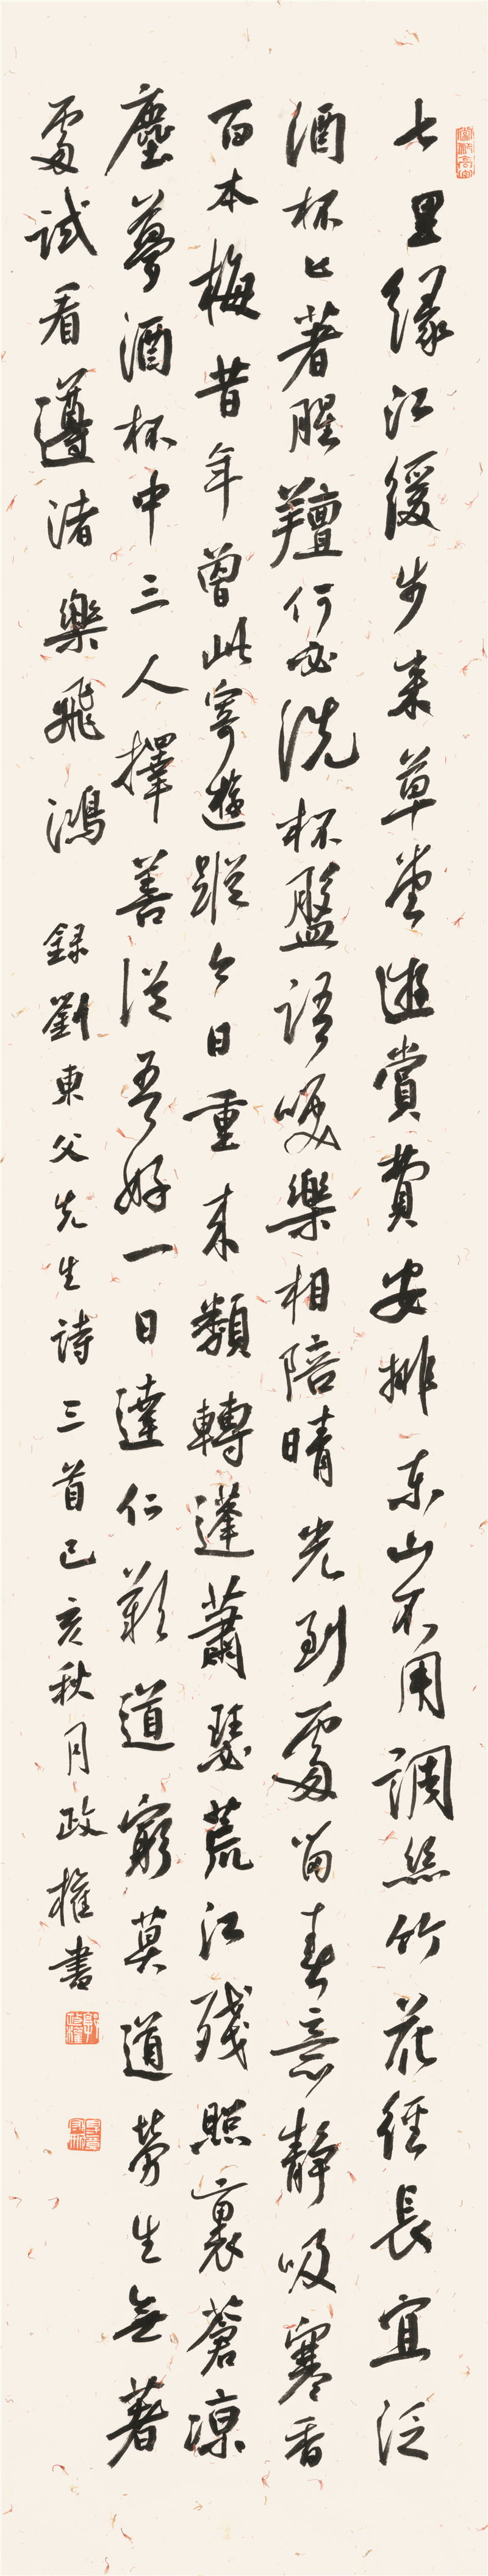 七里緣江緩步来草堂遊賞費安排东山不用調絲竹花徑長宜泛
酒杯匕著腥羶何必洗杯盤語笑樂相陪晴光到處留春意靜吸寒香
百本梅昔年曾此寄遊蹤今日重来類轉蓬蕭瑟荒江殘照裏蒼凉
塵夢酒杯中三人擇善從吾好一日達仁歎道窮莫道勞生無著
處試看遵渚樂飛鴻
錄劉東父先生詩三首己亥秋月政權書